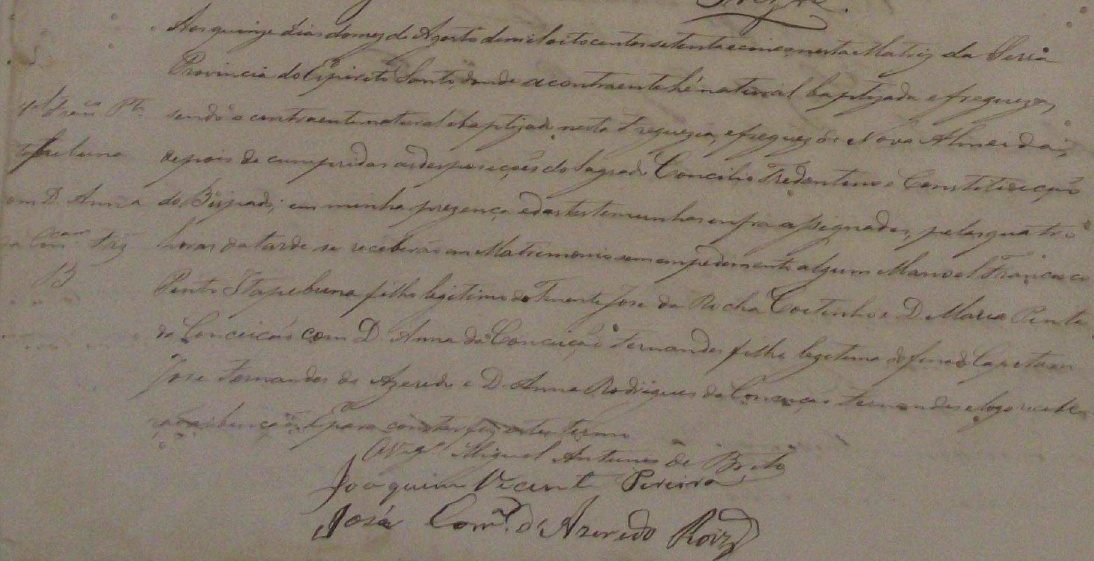 Aos quinze dias do mez de Agosto de mil oito centos setenta e cinco nesta Matriz da Serra
Provincia do Espirito Santo, donde a contraente hé natural baptizada e fregueza,
sendo o contraente natural e baptizado nesta Freguezia, e freguez de Nova Almeida,
depois de cumpridas as desposeções do Sagrado Concilio Tredentino e Constituição
do Bispado; em minha prezença e das testemunhas enfra assignadas, pelas quatro
horas da tarde se receberão em Matremonio sem empedimento algum Manoel Francisco
Pinto Itapebuna filho legitimo do Tenente José da Rocha Coitinho e D. Maria Pinta
da Conceicão com D. Anna da Conceição Fernandes filha legitima do finado Capitam
José Fernandes de Azeredo e D. Anna Rodrigues da Conceição Fernandes e logo recebe
rão as bençãos. E para constar fiz este termo
O Vigº Miguel Antunes de Brito
Joaquim Vicente Pereira
José Com. de Azeredo Roiz
Pto
D. Anna